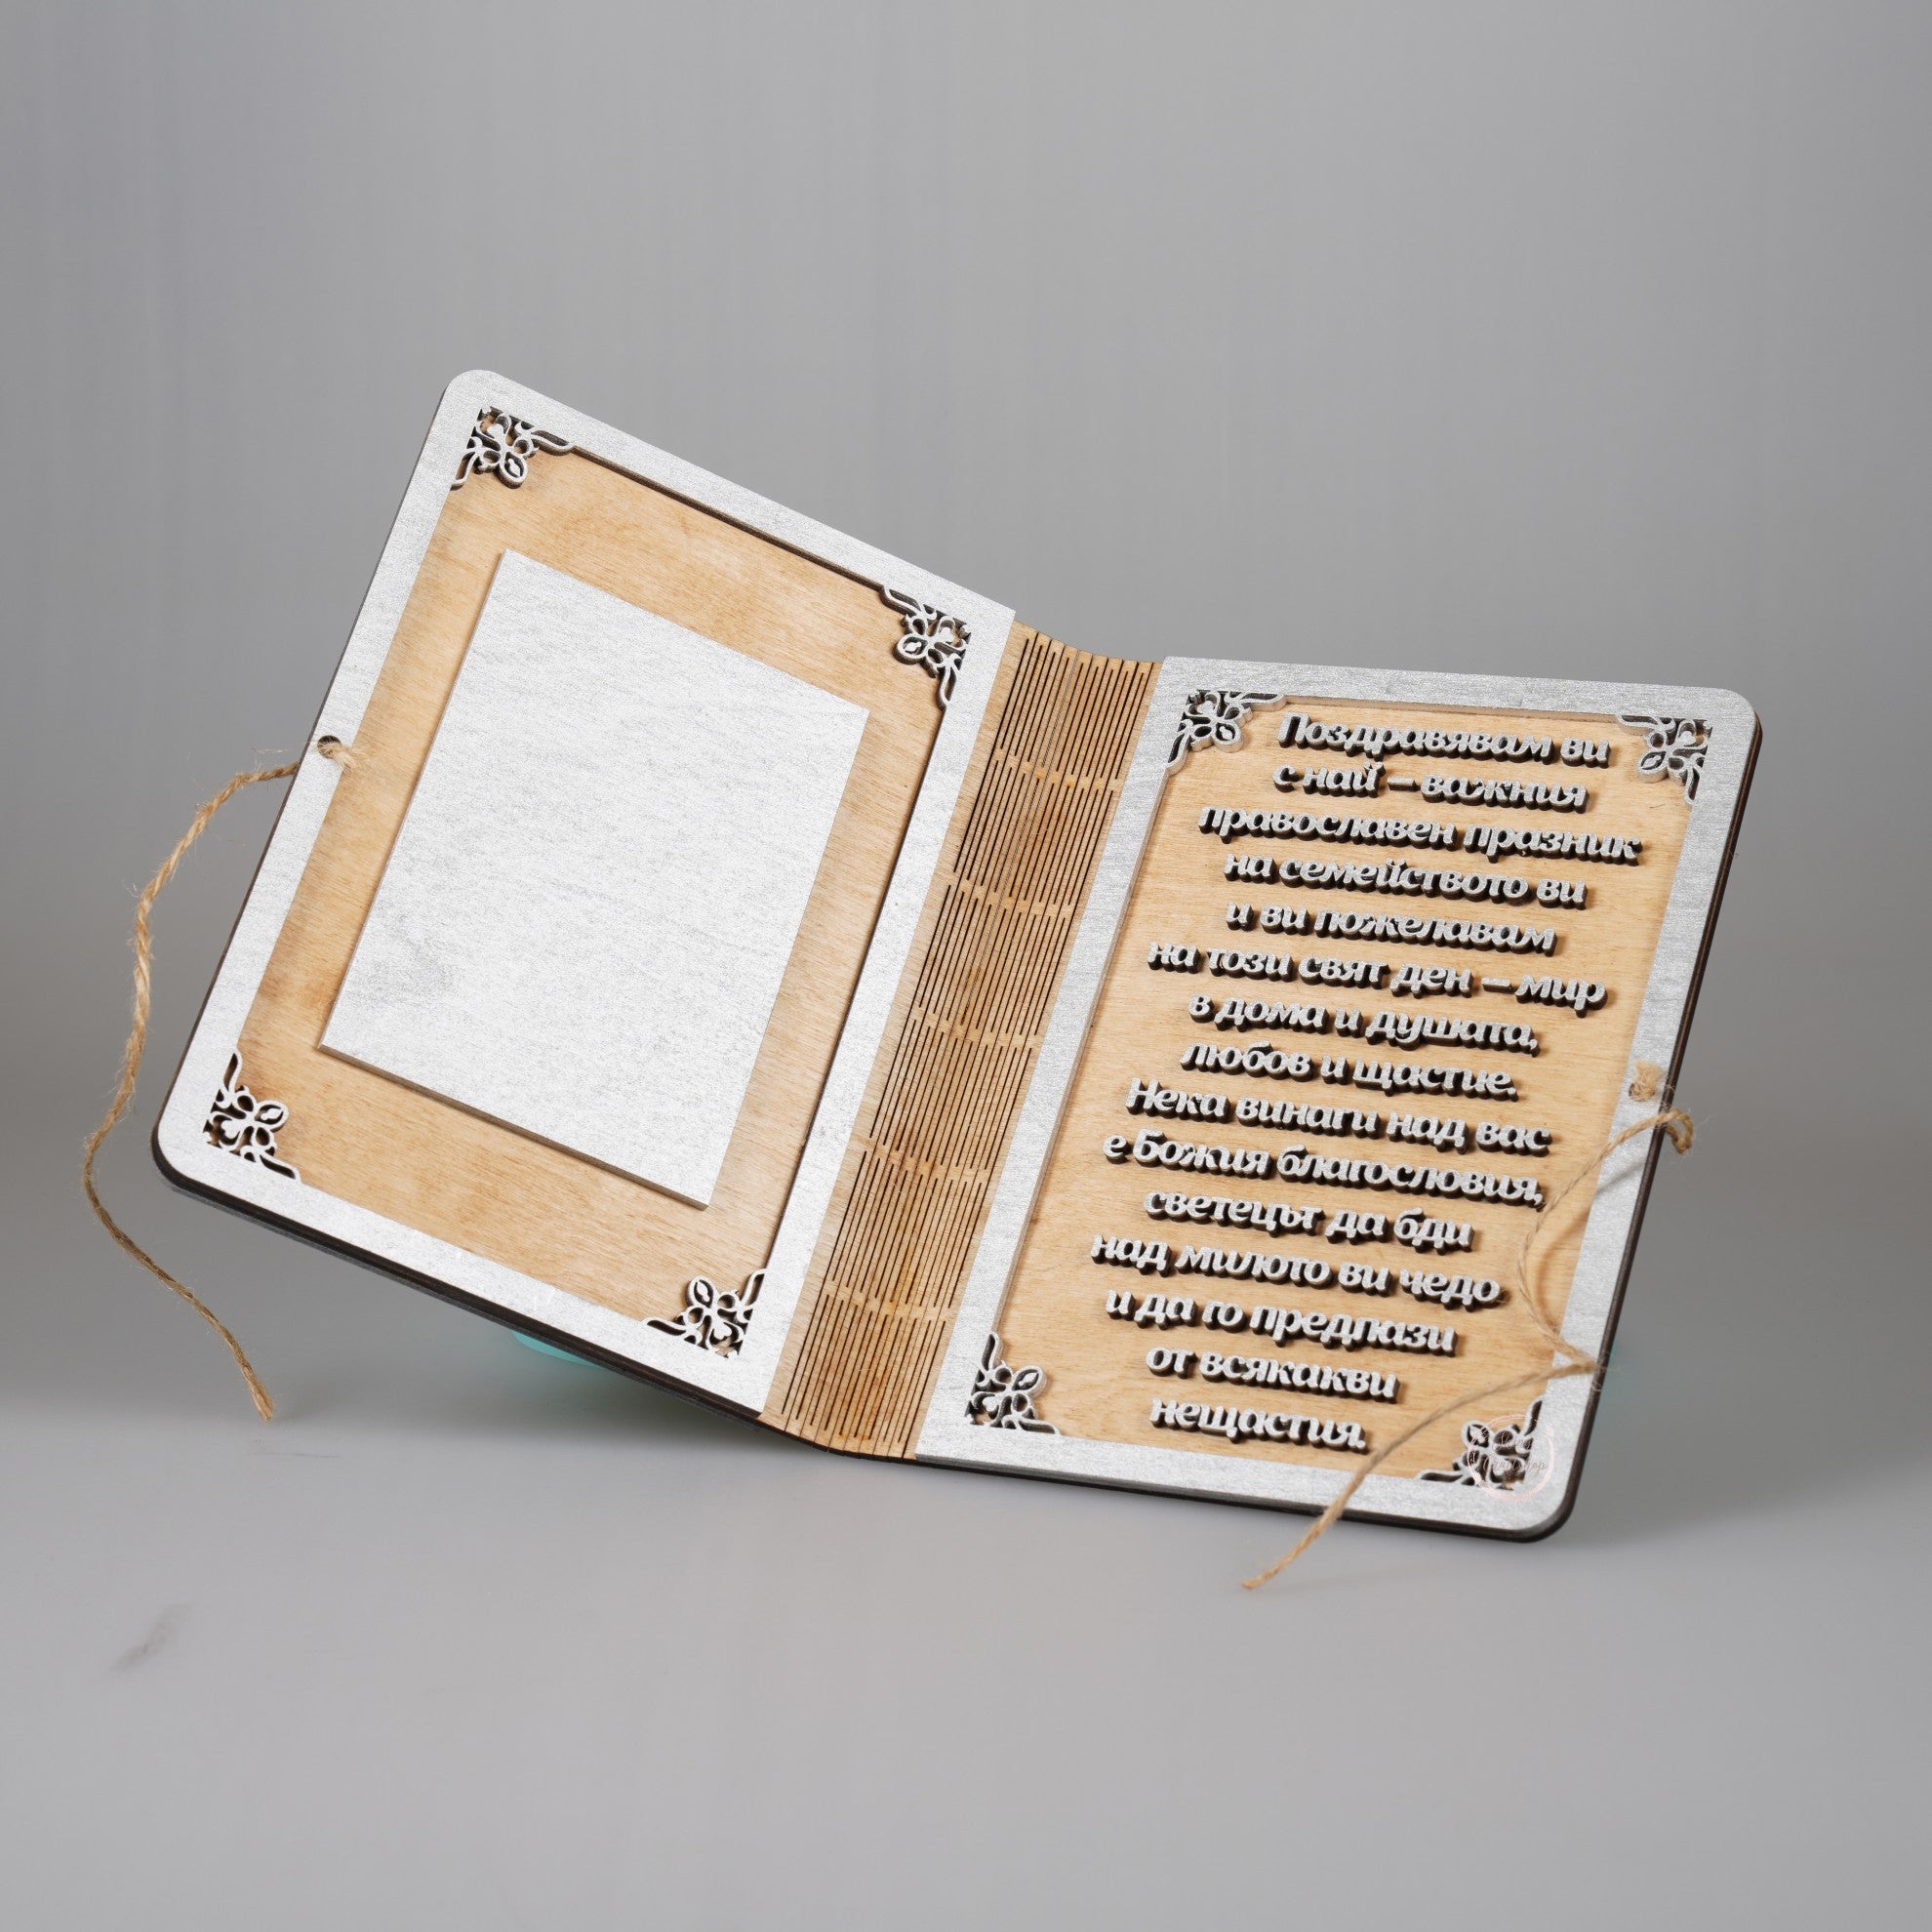 Поздравявам ви
с най – важния
православен празник
на семейството ви
и ви пожелавам
на този свят ден – мир
в дома и душата,
любов и щастие.
Нека винаги над вас
е Божия благословия,
светецът да бди
над милото ви чедо
и да го предпази
от всякакви
нещастия.